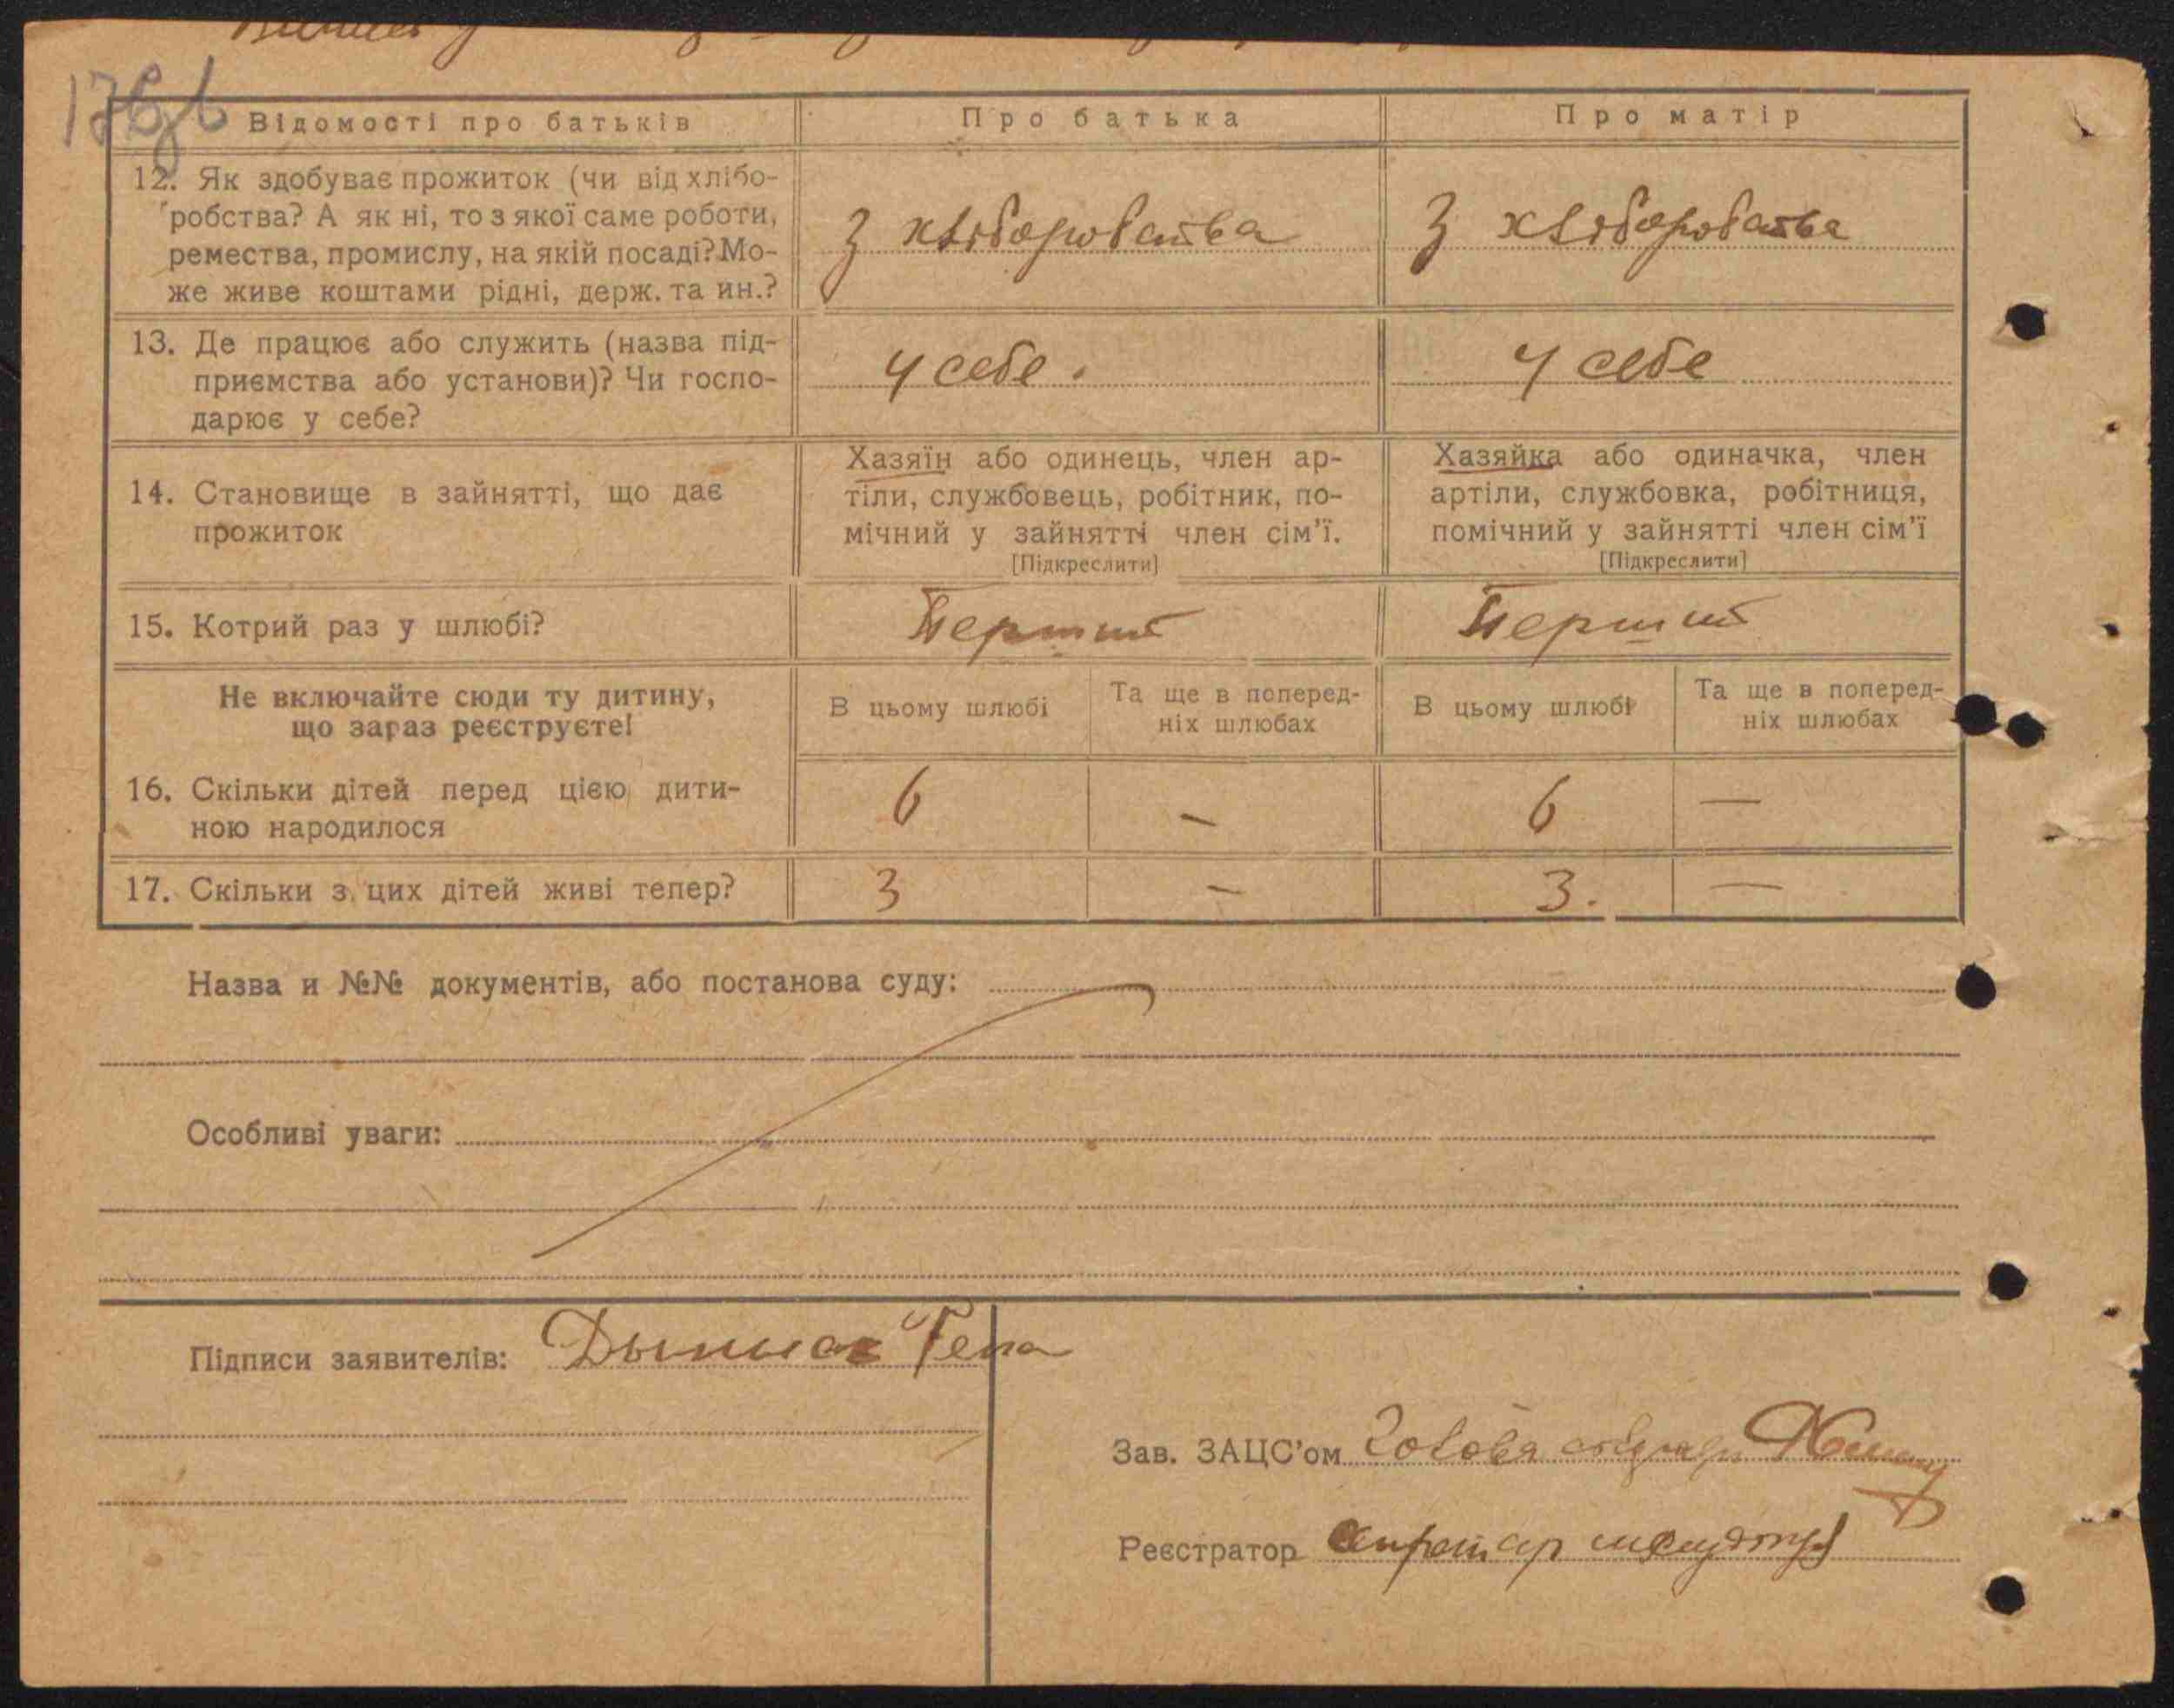 Відомості про батьків
Про батька
Про матір
12. Як здобуває прожиток (чи від хлібо-
робства? А як ні, то з якої саме роботи,
ремества, промислу, на якій посаді? Мо-
же живе коштами рідні, держ. та ин.?
З хліборобства
З хліборобства
13. Де працює або служить (назва під-
приємства або установи)? Чи госпо-
дарює у себе?
У себе.
У себе
14. Становище в зайнятті, що дає
прожиток
Хазяїн або одинець, член ар-
тіли, службовець, робітник, по-
мічний у зайнятті член сім'ї.
[Підкреслити]
Хазяйка або одиначка, член
артіли, службовка, робітниця,
помічний у зайнятті член сім'ї
[Підкреслити]
15. Котрий раз у шлюбі?
Перший
Перший
Не включайте сюди ту дитину,
що зараз реєструєте!
В цьому шлюбі
Та ще в поперед-
ніх шлюбах
В цьому шлюбі
Та ще в поперед-
ніх шлюбах
16. Скільки дітей перед цією дити-
ною народилося
6
–
6
–
17. Скільки з цих дітей живі тепер?
3
–
3.
–
Назва и №№ документів, або постанова суду:
Особливі уваги:
Підписи заявителів:
Зав. ЗАЦС'ом Голова
Реєстратор Секретар